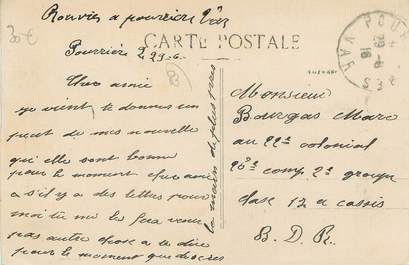 30€
Rouviès a pourrière Var
CARTE POSTALE
Pourrière 2 29 6
Cher amie
je vient te donner un
peut de mes nouvelle
qui elle sont bonne
pour le moment cher amie
a s'il y a des lettres pour
moi tu me les fera
pas autre chose a te dire
pour le moment que de
la main de plus
Monsieur
Bourgas Marc
au 22e colonial
28e comp. 2e groupe
clase 17 a cassis
B. D. R.
POUR
VAR
29 -6
16